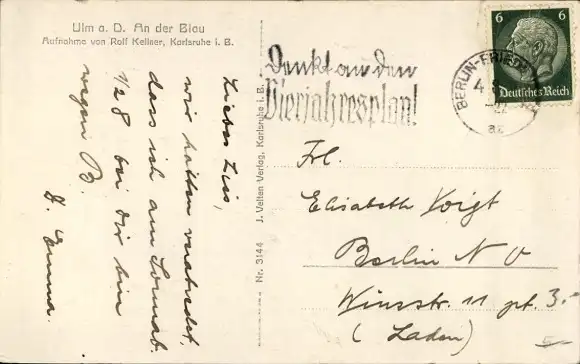 Ulm a. D. An der Blau
Aufnahme von Rolf Kellner, Karlsruhe i. B.
Liebes Lies,
wir hatten verabredet,
dass ich am Sonnab.
1/2 8 bei dir bin
wegen B.
D. Emma.
Nr. 3144 J. Velten Verlag, Karlsruhe i. B.
Denkt an den
Vierjahresplan!
BERLIN-FRIED
4
22
az
6 6
Deutsches Reich
Frl.
Elisabeth Voigt
Berlin N O
Winsstr. 11 pt.
(Laden)
3.-